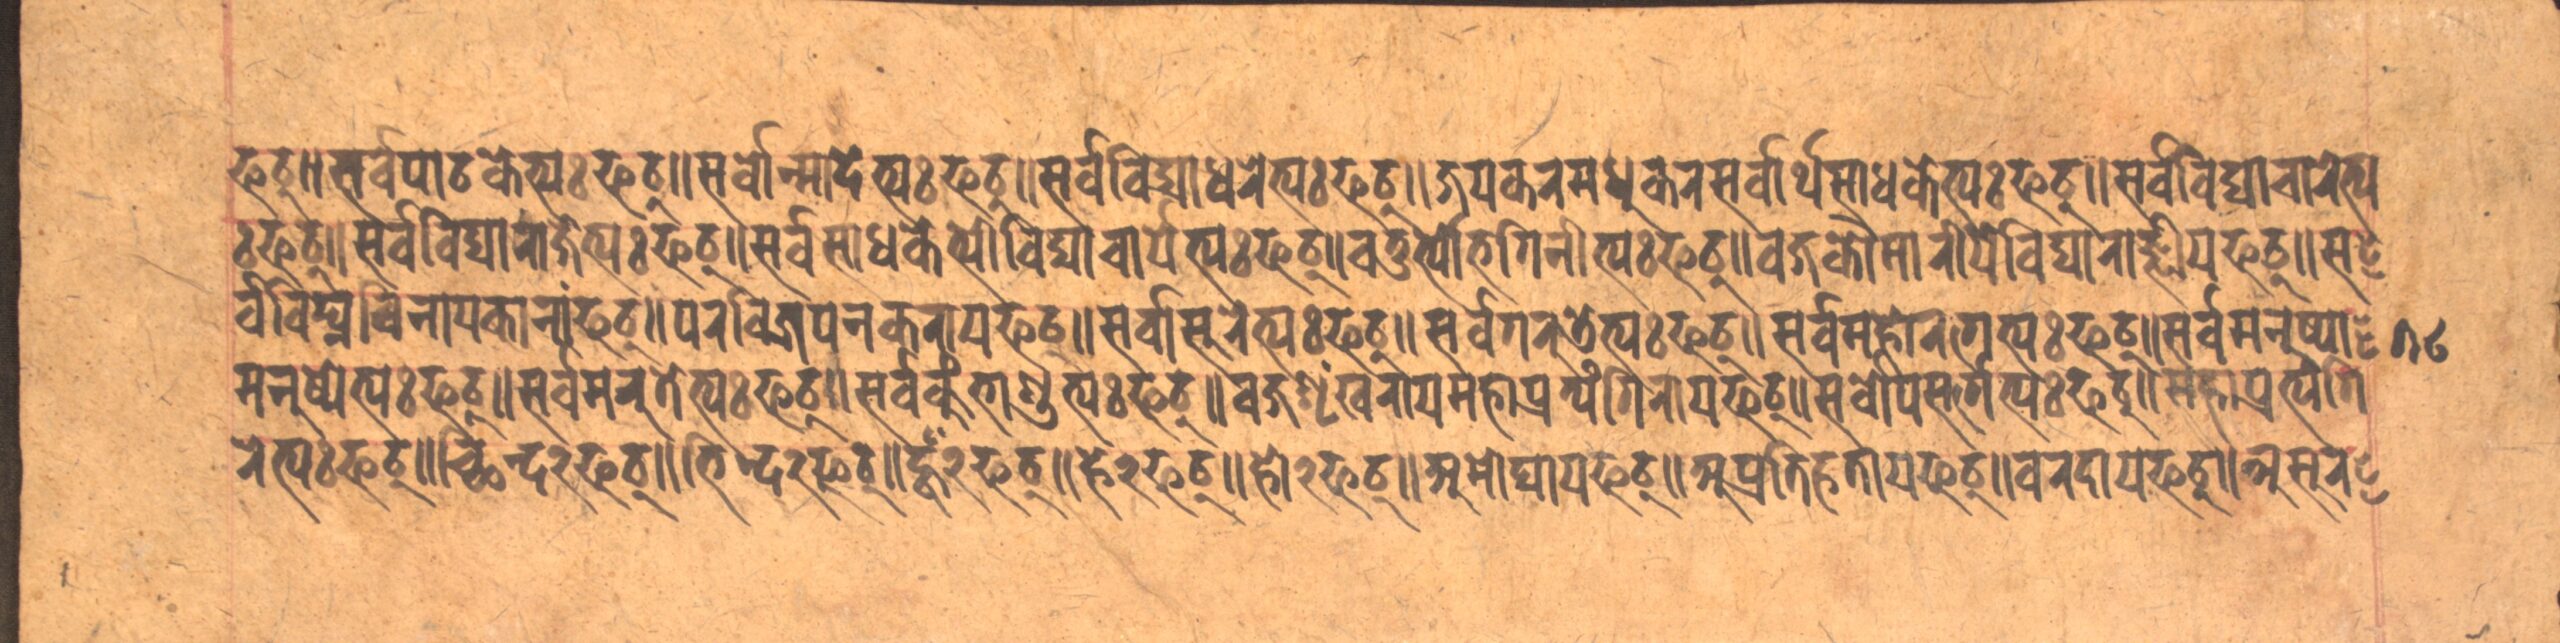 फट्॥ सर्वपाठकेत्यः फट्॥ सर्वोन्मादेत्यः फट्॥ सर्वविद्याधरेत्यः फट्॥ जयकरमधुकरसर्वार्थसाधकेत्यः फट्॥ सर्वविद्याचारेत्य
ः फट्॥ सर्वविद्याराजेत्यः फट्॥ सर्वसाधकेत्यो विद्याचार्येत्यः फट्॥ चतुर्त्यो भगिनीत्यः फट्॥ वज्रकौमारीये विद्याराज्ञीय फट्॥ स
र्वविघ्नविनायकानां फट्॥ परविद्रापनकराय फट्॥ सर्वासुरेत्यः फट्॥ सर्वगरुडेत्यः फट्॥ सर्वमहोरगेत्यः फट्॥ सर्वमनुष्या १८
मनुष्येत्यः फट्॥ सर्वमरुतेत्यः फट्॥ सर्वकुंभाण्डेत्यः फट्॥ वज्रशृंखराय महाप्रत्यंगिराय फट्॥ सर्वोपसर्गेत्यः फट्॥ महाप्रत्यंगि
रेत्यः फट्॥ छिन्द २ फट्॥ भिन्द २ फट्॥ हूँ २ फट्॥ हे २ फट्॥ हो २ फट्॥ अमोघाय फट्॥ अप्रतिहताय फट्॥ वरदाय फट्॥ असुर